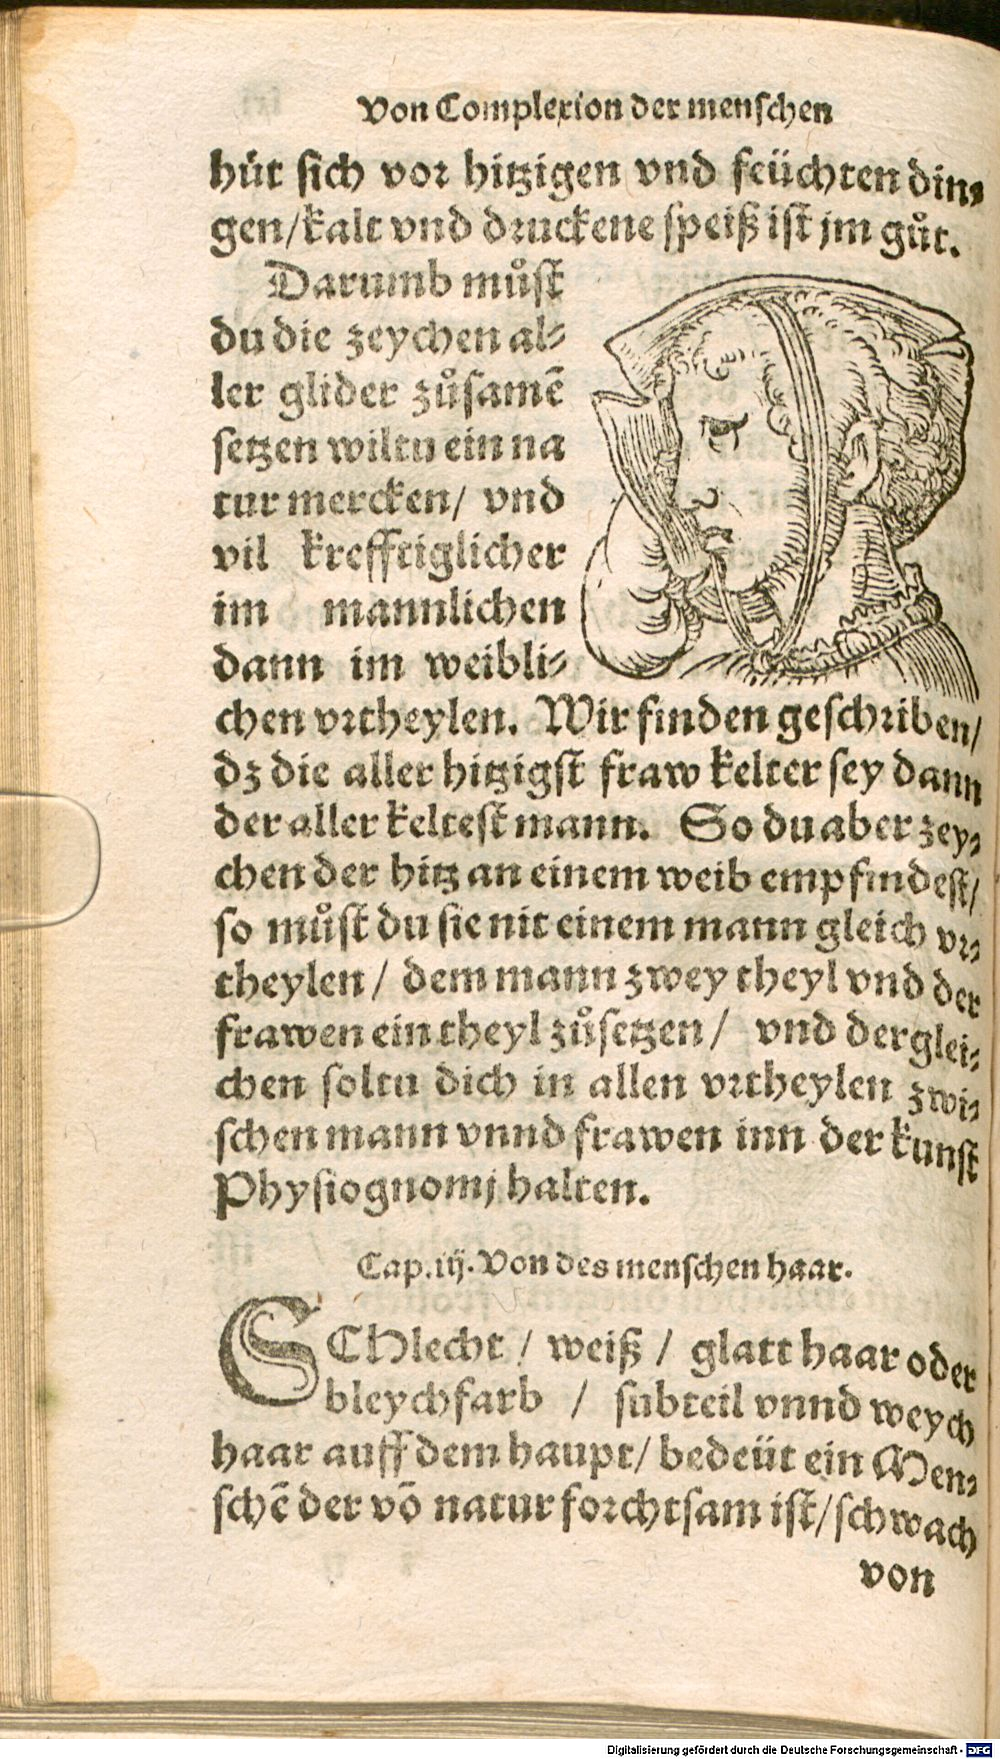 Von Complexion der menschen
hüt sich vor hitzigen vnd feüchten din⸗
gen/kalt vnd druckene speiß ist jm gůt.
Darumb můst
du die zeychen al⸗
ler glider zůsamē
setzen wiltu ein na
tur mercken/ vnd
vil krefftiglicher
im mannlichen
dann im weibli⸗
chen vrtheylen. Wir finden geschriben/
dz die aller hitzigst fraw kelter sey dann
der aller keltest mann. So du aber zey⸗
chen der hitz an einem weib empfindest/
so můst du sie nit einem mann gleich vr⸗
theylen/ dem mann zwey theyl vnd der
frawen ein theyl zůsetzen/ vnd derglei⸗
chen soltu dich in allen vrtheylen zwi⸗
schen mann vnnd frawen inn der kunst
Physiognomj halten.
Cap.iij. Von des menschen haar.
SCHlecht / weiß / glatt haar oder
bleychfarb / subteil vnnd weych
haar auff dem haupt/ bedeüt ein Men⸗
schē der vō natur forchtsam ist/schwach
von
Digitalisierung gefördert durch die Deutsche Forschungsgemeinschaft - DFG